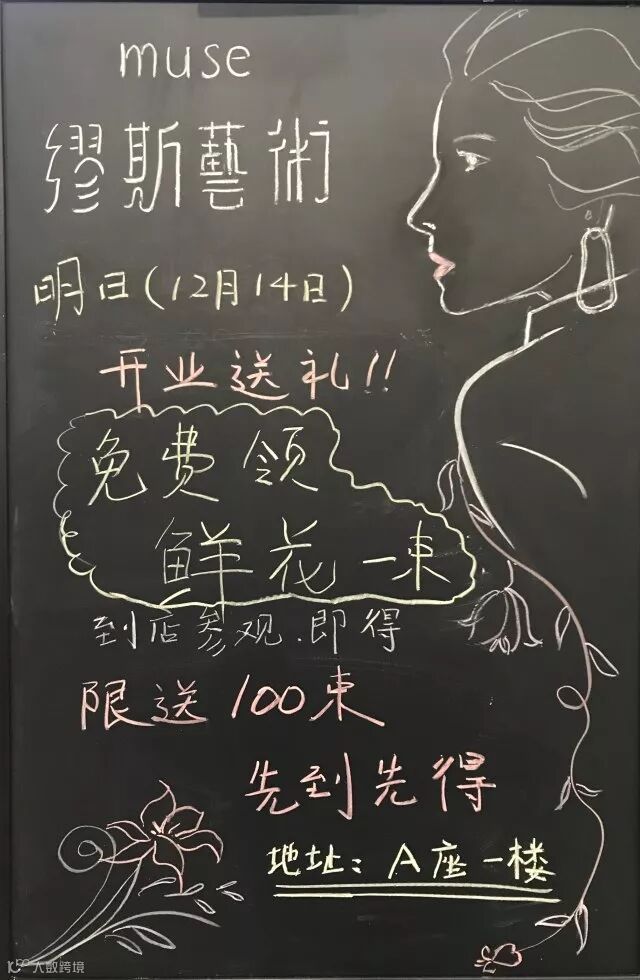 muse
繆斯藝術
明日(12月14日)
开业送礼!!
免费领
鲜花一束
到店参观.即得
限送100束
先到先得
地址:A座一楼
大数跨境